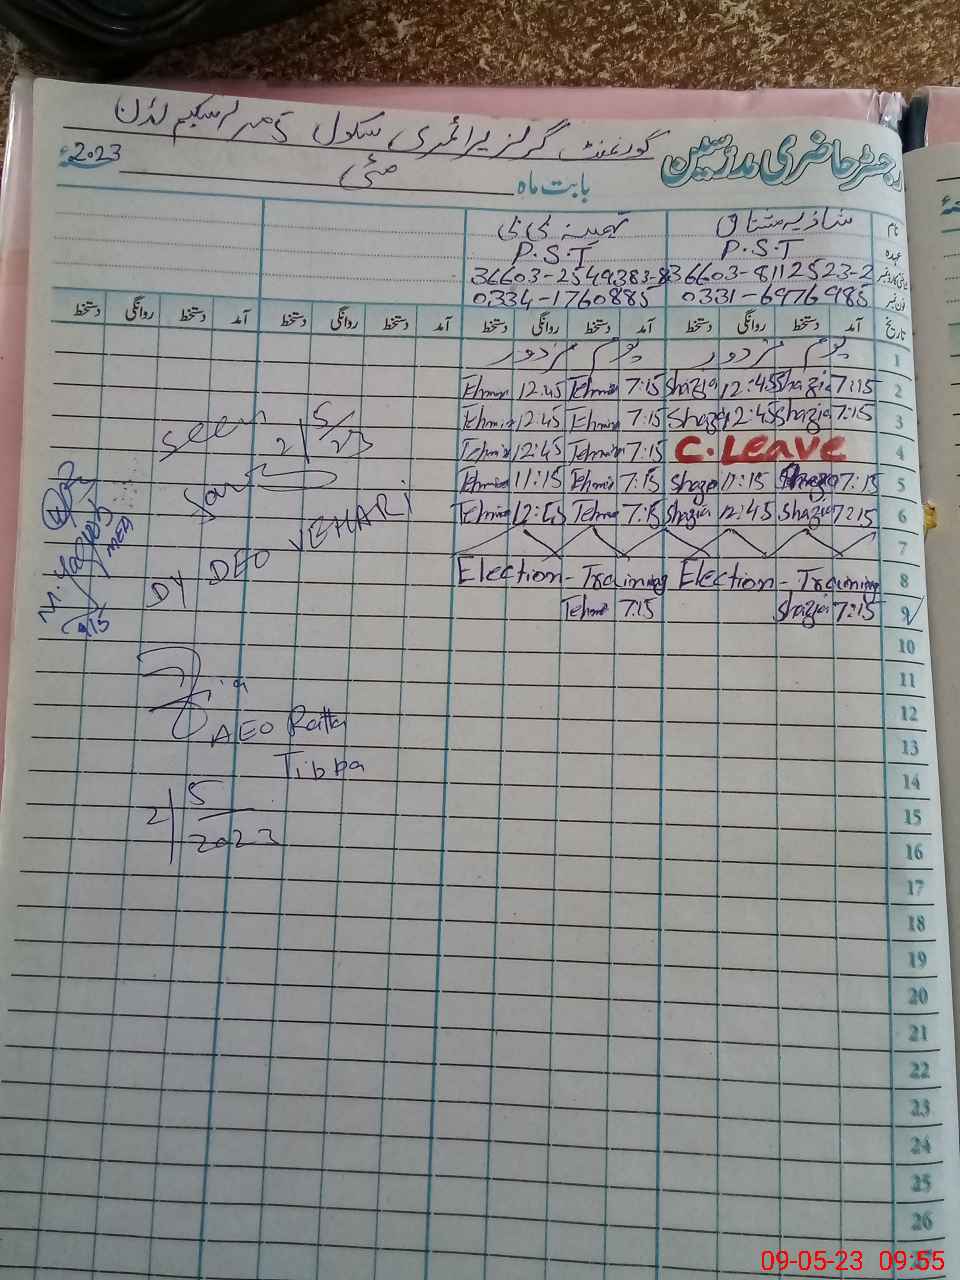 گورنمنٹ گرلز پرائمری سکول
رجسٹر حاضری مدرسین
بابت ماہ مئی 2023ء
نام شازیہ مشتاق تہمینہ بی بی
عہدہ P.S.T P.S.T
36603-8112523-2 36603-2549383-8
فون نمبر 0331-6976985 0334-1760885
تاریخ آمد دستخط روانگی دستخط آمد دستخط روانگی دستخط آمد دستخط روانگی دستخط آمد دستخط روانگی دستخط
1 یوم مزدور یوم مزدور
2 7:15 Shazia 12:45 Shazia 7:15 Tehmina 12:45 Tehmina
3 7:15 Shazia 12:45 Shazia 7:15 Tehmina 12:45 Tehmina
4 C.Leave 7:15 Tehmina 12:45 Tehmina
5 7:15 Shazia 11:15 Shazia 7:15 Tehmina 11:15 Tehmina
6 7:15 Shazia 12:45 Shazia 7:15 Tehmina 12:45 Tehmina
7
8 Election - Training Election - Training
9 7:15 Shazia 7:15 Tehmina
10
11
12
13
14
15
16
17
18
19
20
21
22
23
24
25
26
Seen
2/5/23
DY DEO VEHARI
M. Yaqoob
MEA
9/5
AEO Ratta
Tibba
2/5/2023
09-05-23 09:55